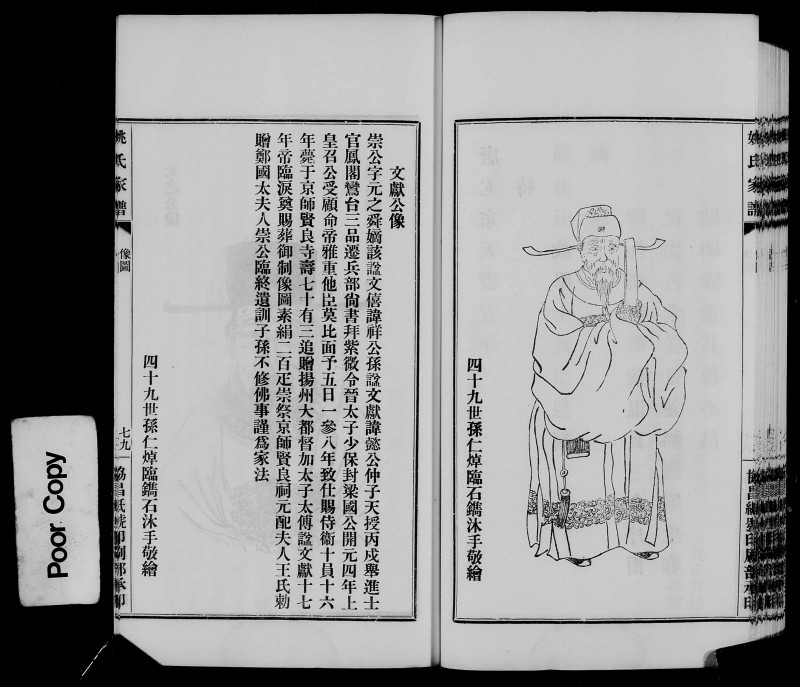 姚氏家譜
四十九世孫仁焯臨石鐫沐手敬繪
文獻公像
崇公字元之舜嫡該諡文僖諱祥公孫諡文獻諱懿公仲子天授丙戍舉進士
官鳳閣鸞台三品遷兵部尙書拜紫微令晉太子少保封梁國公開元四年上
皇召公受顧命帝雅重他臣莫比面予五日一參八年致仕賜侍衞十員十六
年薨于京師賢良寺壽七十有三追贈揚州大都督加太子太傅諡文獻十七
年帝臨淚奠賜葬御制像圖素絹二百疋崇祭京師賢良祠元配夫人王氏勅
贈鄭國太夫人崇公臨終遺訓子孫不修佛事謹爲家法
四十九世孫仁焯臨鐫石沐手敬繪
姚氏家譜
像圖
七九
協昌紙號印刷部承印
Poor Copy